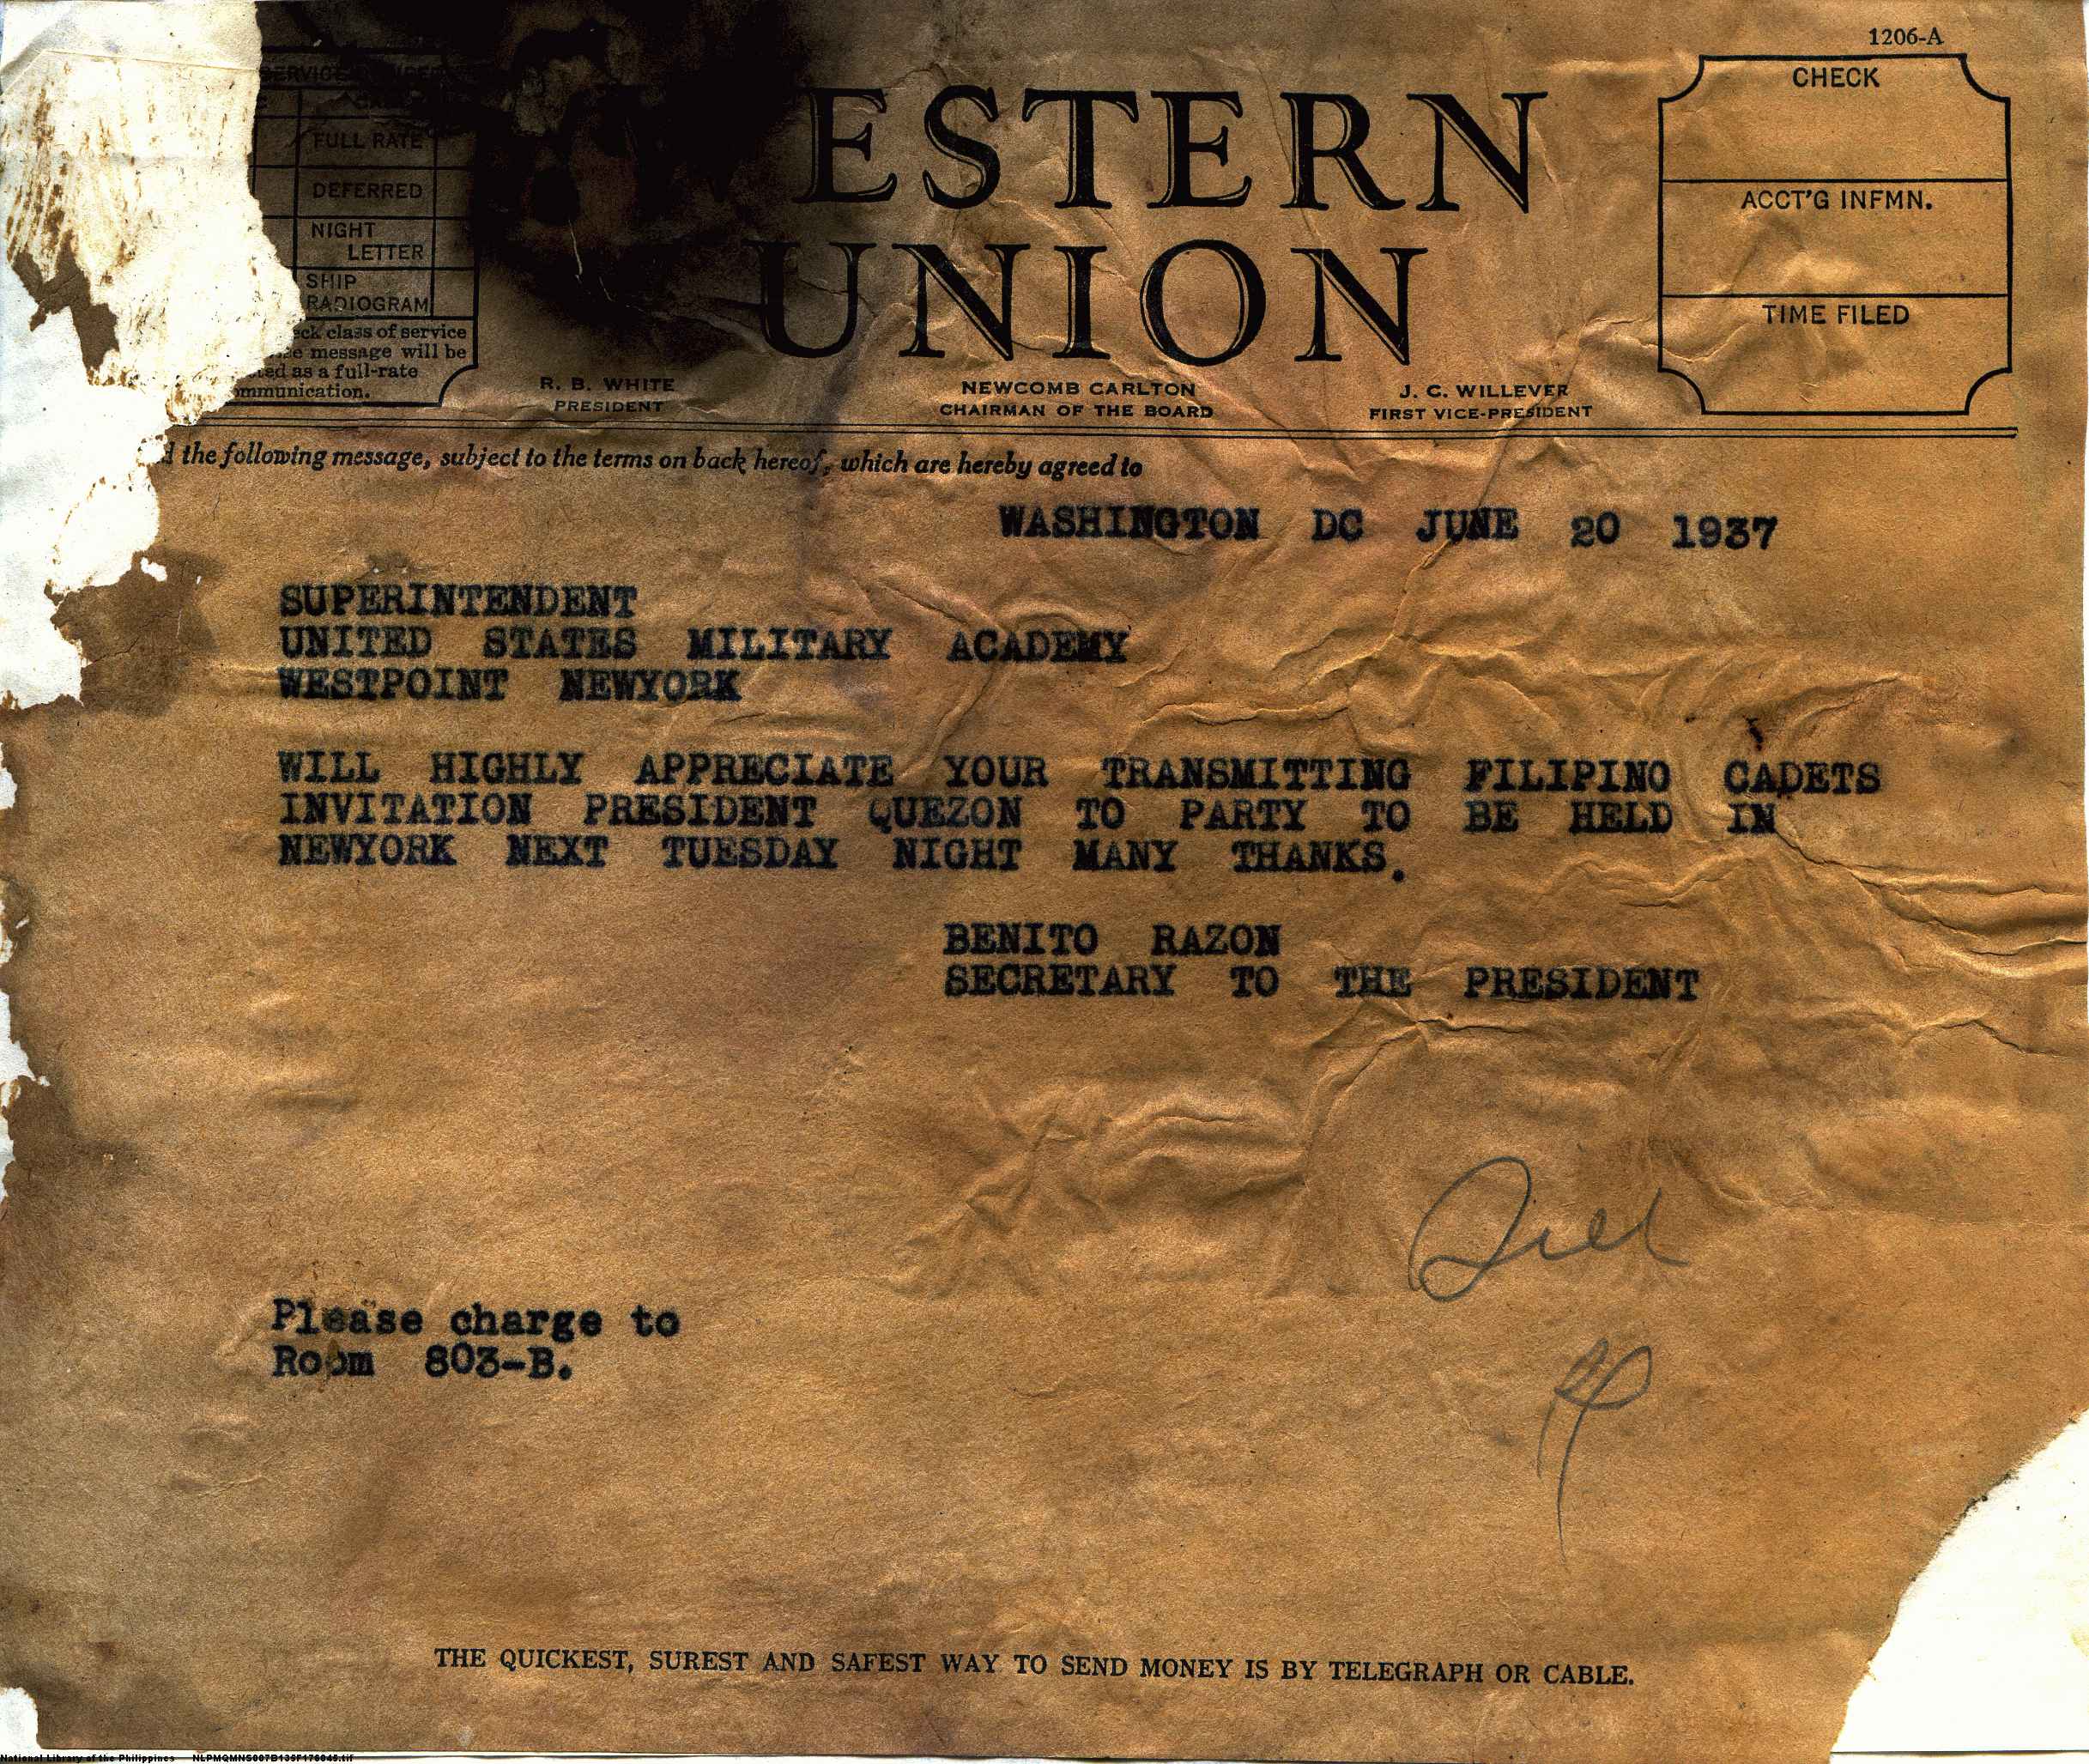 1206-A
CHECK
ACCT'G INFMN.
TIME FILED
FULL RATE
DEFERRED
NIGHT
LETTER
SHIP
RADIOGRAM
class of service
message will be
as a full-rate
ESTERN
UNION
R. B. WHITE
PRESIDENT
NEWCOMB CARLTON
CHAIRMAN OF THE BOARD
J. C. WILLEVER
FIRST VICE-PRESIDENT
the following message, subject to the terms on back hereof, which are hereby agreed to
WASHINGTON DC JUNE 20 1937
SUPERINTENDENT
UNITED STATES MILITARY ACADEMY
WESTPOINT NEWYORK
WILL HIGHLY APPRECIATE YOUR TRANSMITTING FILIPINO CADETS
INVITATION PRESIDENT QUEZON TO PARTY TO BE HELD IN
NEWYORK NEXT TUESDAY NIGHT MANY THANKS.
BENITO RAZON
SECRETARY TO THE PRESIDENT
Please charge to
Room 803-B.
THE QUICKEST, SUREST AND SAFEST WAY TO SEND MONEY IS BY TELEGRAPH OR CABLE.
National Library of the Philippines